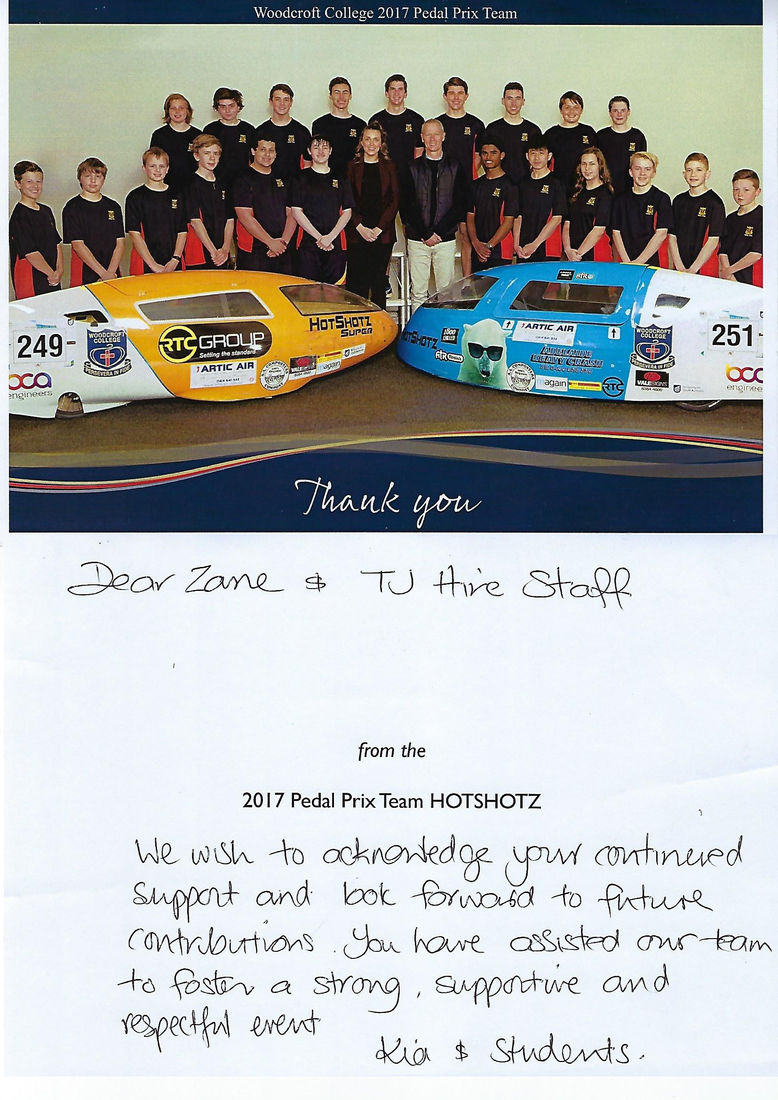 Woodcroft College 2017 Pedal Prix Team
249
WOODCROFT COLLEGE
PERSEVERA IN FIDE
bca
engineers
RTC GROUP
Setting the standard
HOTSHOTZ
SUPER
ARTIC AIR
again
HOTSHOTZ
ATR
ARTIC AIR
ADELAIDE
HEAVY CRASH
again
RTC
WOODCROFT COLLEGE
PERSEVERA IN FIDE
VALE SIGNS
251
bca
engineers
Thank you
Dear Zane & TJ Hire Staff
from the
2017 Pedal Prix Team HOTSHOTZ
We wish to acknowledge your continued
support and look forward to future
contributions. You have assisted our team
to foster a strong, supportive and
respectful event
Kia & Students.